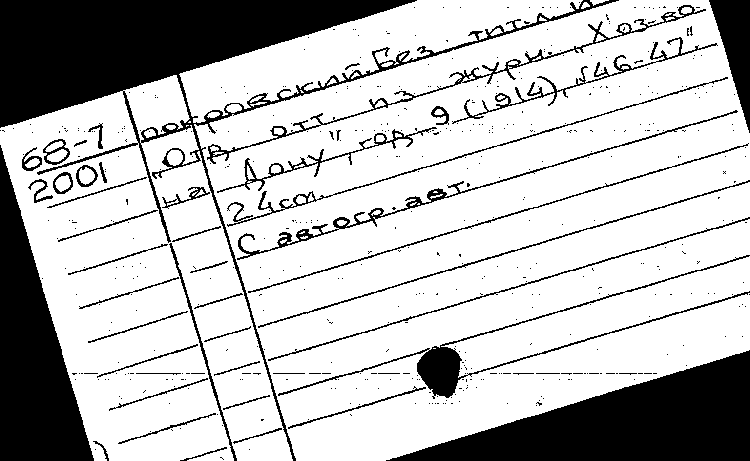 покровский. Без тит. л. и
68-7 „Отд. отт. из журн. „Хоз-во
2001 на Дону", год 9 (1914), №46-47".
24см.
С автогр. авт.